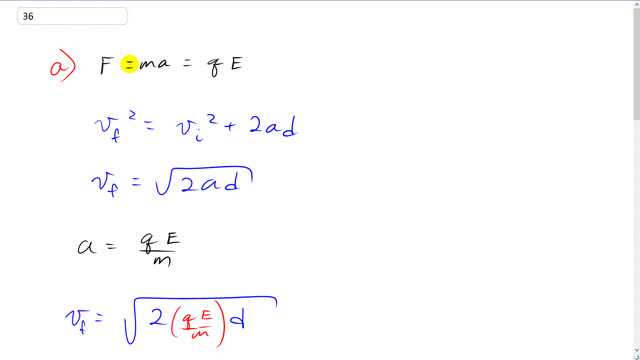 36
a) F = ma = qE
v_f² = v_i² + 2ad
v_f = √(2ad)
a = qE/m
v_f = √(2(qE/m)d)